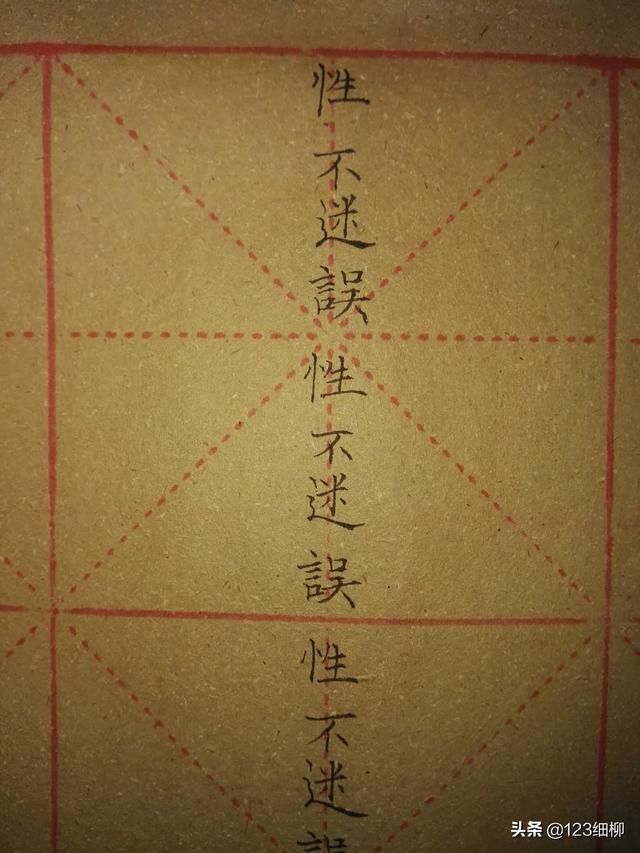 性不迷誤性不迷誤性不迷誤
头条 @123细柳